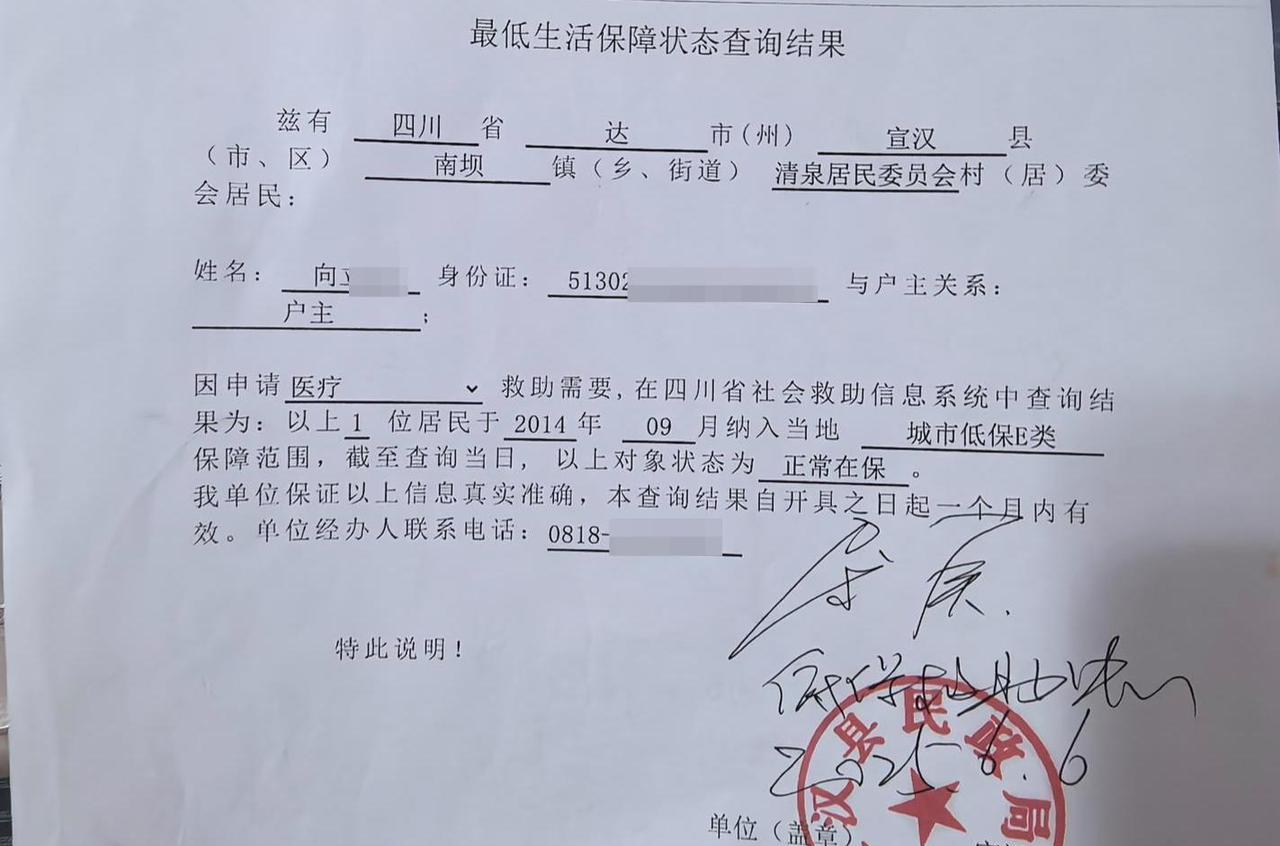 最低生活保障状态查询结果
兹有 四川 省 达 市(州) 宣汉 县
(市、区) 南坝 镇(乡、街道) 清泉居民委员会村(居)委
会居民:
姓名: 向 身份证: 51302 与户主关系:
户主 ;
因申请 医疗 救助需要,在四川省社会救助信息系统中查询结
果为:以上 1 位居民于 2014 年 09 月纳入当地 城市低保E类
保障范围,截至查询当日,以上对象状态为 正常在保 。
我单位保证以上信息真实准确,本查询结果自开具之日起一个月内有
效。单位经办人联系电话:0818-
特此说明!
低保救助
2025.6.6
汉县民政局
单位(盖章)